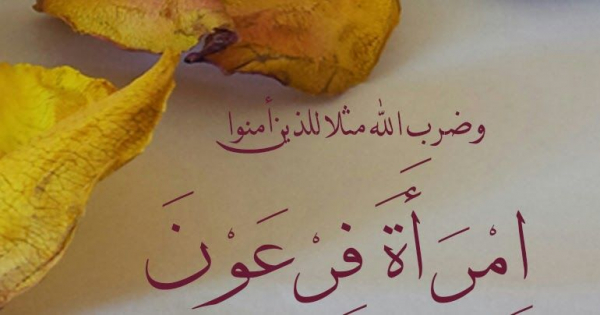 وضرب الله مثلا للذين أمنوا
امْرَأَةَ فِرْعَوْنَ